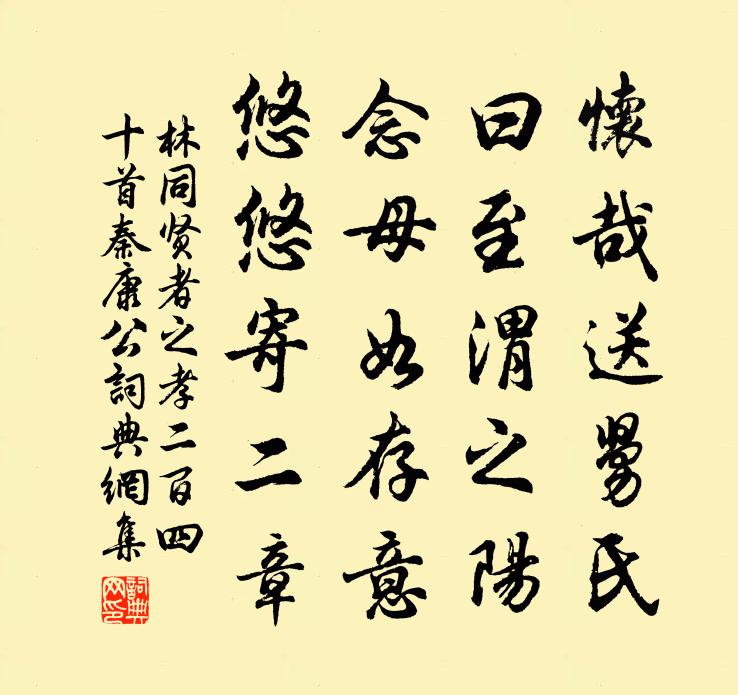 懷哉送舅氏
曰至渭之陽
念母如存意
悠悠寄二章
林同賢者之孝二百四
十首秦康公詞典網集
詞典
网印